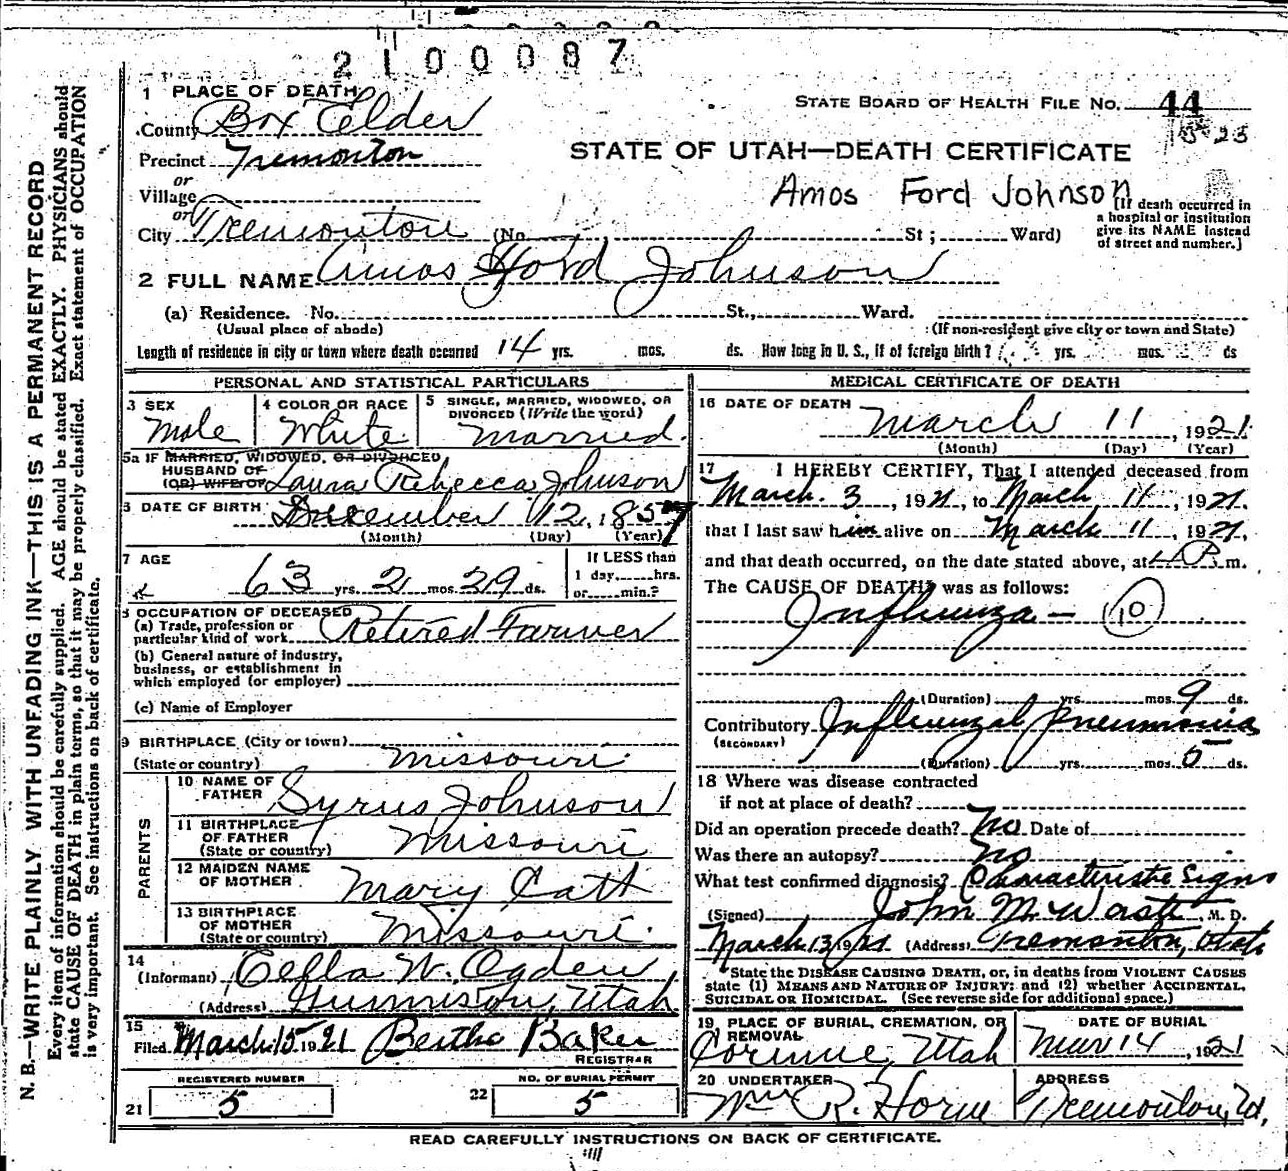 2100087
1 PLACE OF DEATH
STATE BOARD OF HEALTH FILE NO. 44
County Box Elder
Precinct Tremonton
STATE OF UTAH—DEATH CERTIFICATE
or
Village
Amos Ford Johnson
[If death occurred in
a hospital or institution
give its NAME instead
of street and number.]
or
City Tremonton (No. St; Ward)
2 FULL NAME Amos Ford Johnson
(a) Residence. No. St., Ward.
(Usual place of abode) (If non-resident give city or town and State)
Length of residence in city or town where death occurred 14 yrs. mos. ds. How long in U. S., if of foreign birth? yrs. mos. ds
PERSONAL AND STATISTICAL PARTICULARS
3 SEX Male
4 COLOR OR RACE White
5 SINGLE, MARRIED, WIDOWED, OR
DIVORCED (Write the word)
Married.
5a IF MARRIED, WIDOWED, OR DIVORCED
HUSBAND OF
(OR) WIFE OF Laura Rebecca Johnson
6 DATE OF BIRTH December 12, 1857
(Month) (Day) (Year)
7 AGE
63 yrs. 2 mos. 29 ds.
If LESS than
1 day,......hrs.
or......min.?
8 OCCUPATION OF DECEASED
(a) Trade, profession or
particular kind of work Retired Farmer
(b) General nature of industry,
business, or establishment in
which employed (or employer)
(c) Name of Employer
9 BIRTHPLACE (City or town)
(State or country) Missouri
PARENTS
10 NAME OF
FATHER Syrus Johnson
11 BIRTHPLACE
OF FATHER
(State or country) Missouri
12 MAIDEN NAME
OF MOTHER Mary Catt
13 BIRTHPLACE
OF MOTHER
(State or country) Missouri.
14
(Informant) Cella W. Ogden
(Address) Gunnison, Utah
15
Filed March 15 1921 Bertha Baker
REGISTRAR
REGISTERED NUMBER
21 5
NO. OF BURIAL PERMIT
22 5
MEDICAL CERTIFICATE OF DEATH
16 DATE OF DEATH March 11, 1921
(Month) (Day) (Year)
17 I HEREBY CERTIFY, That I attended deceased from
March. 3, 1921, to March 11, 1921.
that I last saw him alive on March 11, 1921,
and that death occurred, on the date stated above, at P. m.
The CAUSE OF DEATH was as follows:
Influenza — 10
(Duration) yrs. mos. 9 ds.
Contributory Influenzal Pneumonia
(SECONDARY)
(Duration) yrs. mos. 5 ds.
18 Where was disease contracted
if not at place of death?
Did an operation precede death? No Date of
Was there an autopsy? No
What test confirmed diagnosis? Characteristic Signs
(Signed) John M. M. D.
March 1921 (Address) Tremonton, Utah
State the DISEASE CAUSING DEATH, or, in deaths from VIOLENT CAUSES
state (1) MEANS AND NATURE OF INJURY; and (2) whether ACCIDENTAL,
SUICIDAL OR HOMICIDAL. (See reverse side for additional space.)
19 PLACE OF BURIAL, CREMATION, OR
REMOVAL
Corinne, Utah
DATE OF BURIAL
Mar 14, 1921
20 UNDERTAKER
Wm R. Horne
ADDRESS
Tremonton, Ut,
READ CAREFULLY INSTRUCTIONS ON BACK OF CERTIFICATE.
N. B.—WRITE PLAINLY WITH UNFADING INK—THIS IS A PERMANENT RECORD
Every item of information should be carefully supplied. AGE should be stated EXACTLY. PHYSICIANS should
state CAUSE OF DEATH in plain terms, so that it may be properly classified. Exact statement of OCCUPATION
is very important. See instructions on back of certificate.